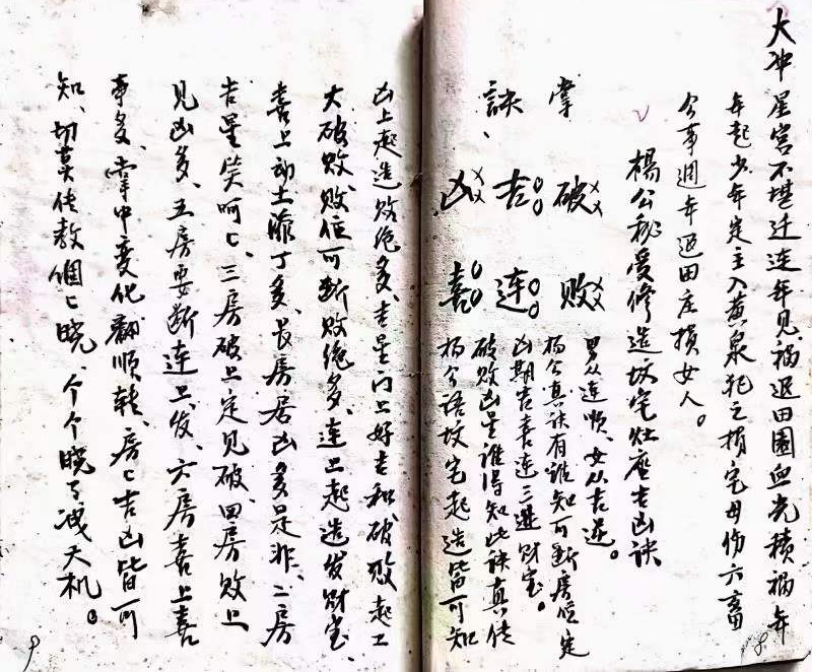 大冲星宫不堪迁连年见祸退田園血光積祸年
年起少年定主入黄泉犯之損宅母伤六畜
今事週年退田庄損女人。
楊公秘受修造坟宅灶座吉凶诀
掌
訣、
破×× 敗××
吉○○ 連○○
凶×× 喜○○
男从連顺、女从吉逆。
杨公真诀有誰知可断房位定
凶期吉喜連三進财宝。
破败凶星谁得知此诀真传
杨公语坟宅起造皆可知
8
凶上起造败绝多、吉星门上好吉和破败起工
大破败、败位可断败绝多、連上起造发财宝、
喜上动土添丁多、長房居凶多是非、二房
吉星笑呵々、三房破上定见破、四房败上
见凶多、五房要断連上发、六房喜上喜
事多、掌中变化翻顺转、房々吉凶皆可
知、切莫传教個々晓、个个晓了洩天机。
9